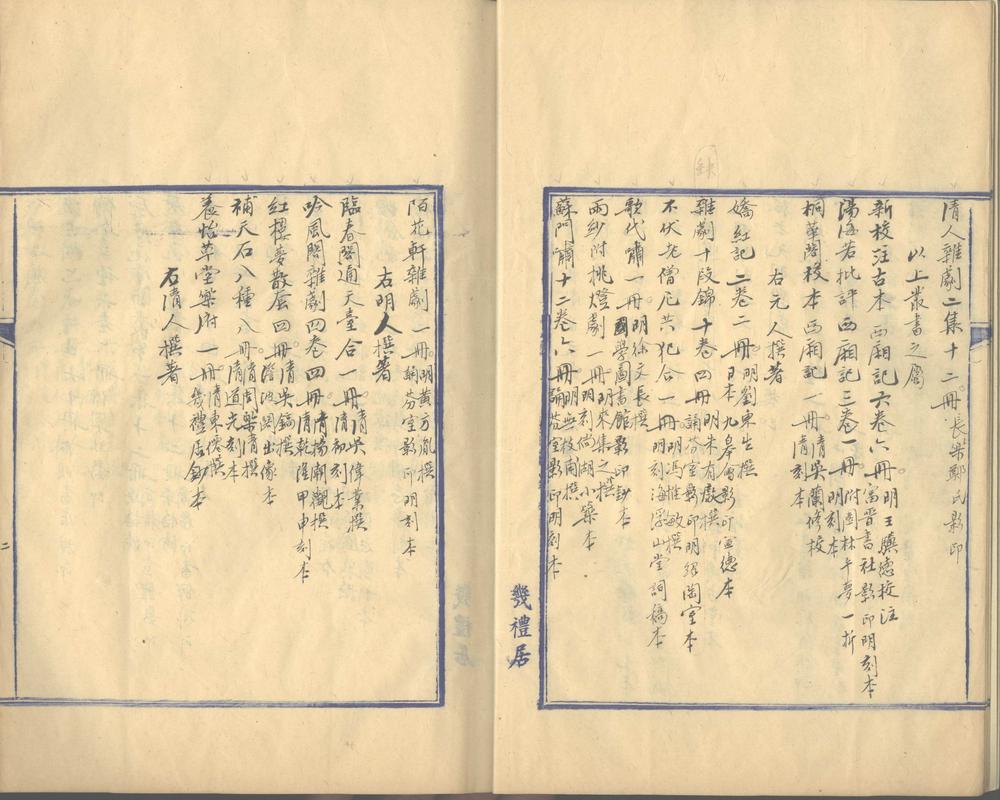 清人雜劇二集十二冊 長樂鄭氏影印
以上叢書之屬
新校注古本西廂記六卷六冊 明王驥德校注 富晋書社影印明刻本
湯海若批評西廂記三卷一冊 明刻本 附圍林午夢一折
桐華閣校本西廂記一冊 清吳蘭修校 清刻本
右元人撰著
嬌紅記二卷二冊 明劉東生撰 日本九皋會影印宣德本
缺
雜劇十段錦十卷四冊 明朱有燉撰 誦芬室影印明紹陶室本
不伏老僧尼共犯合一冊 明馮惟敏撰 明刻海浮山堂詞稿本
歌代嘯一冊 明徐文長撰 國學圖書館影印鈔本
兩紗附挑燈劇一冊 明來集之撰 明刻倘湖小築本
蘇門嘯十二卷六冊 明無枝甫撰 誦芬室影印明刻本
幾禮居
陌花軒雜劇一冊 明黃方胤撰 誦芬室影印明刻本
右明人撰著
臨春閣通天臺合一冊 清吳偉業撰 清初刻本
吟風閣雜劇四卷四冊 清楊潮觀撰 清乾隆甲申刻本
紅樓夢散套四冊 清吳鎬撰 蟾波閣出像本
補天石八種八冊 清周樂清撰 清道光刻本
養怡草堂樂府一冊 清東僊撰 幾禮居鈔本
右清人撰著
二